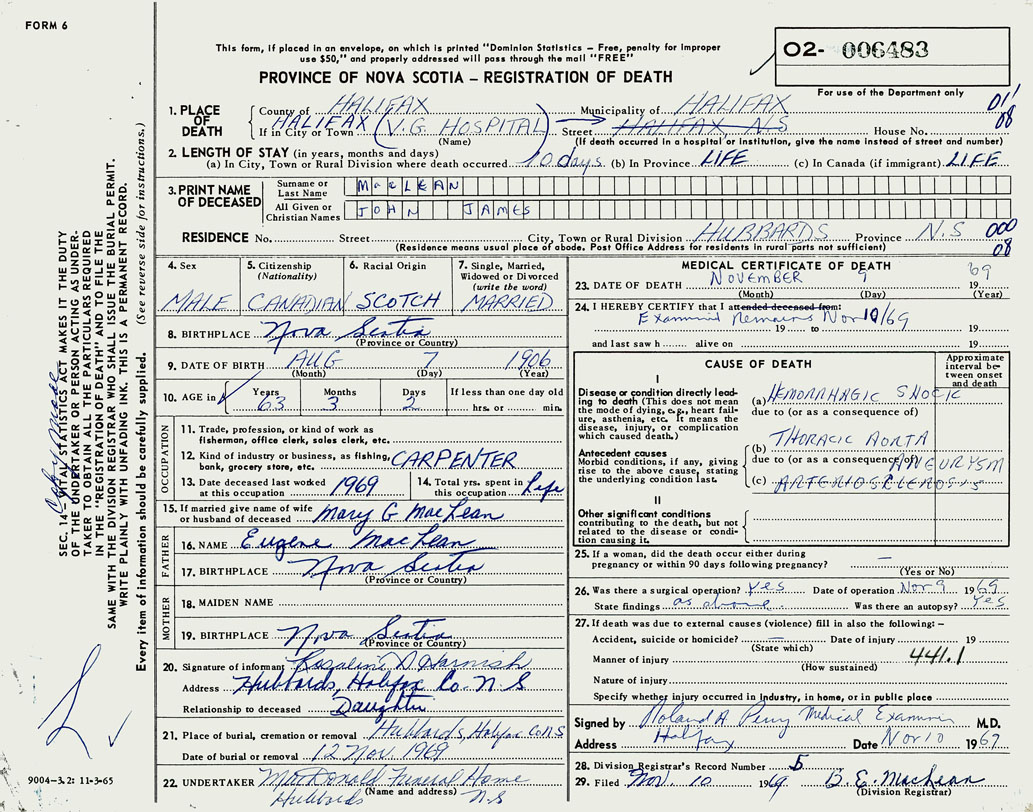 FORM 6
This form, if placed in an envelope, on which is printed "Dominion Statistics – Free, penalty for improper
use $50," and properly addressed will pass through the mail "FREE"
PROVINCE OF NOVA SCOTIA – REGISTRATION OF DEATH
02- 006483
For use of the Department only
011
08
1. PLACE OF DEATH
County of HALIFAX Municipality of HALIFAX
HALIFAX
If in City or Town (V.G. HOSPITAL) Street HALIFAX N.S House No.
(Name) (If death occurred in a hospital or institution, give the name instead of street and number)
2. LENGTH OF STAY (in years, months and days)
(a) In City, Town or Rural Division where death occurred 10 days (b) In Province LIFE (c) In Canada (if immigrant) LIFE
3. PRINT NAME OF DECEASED
Surname or Last Name MacLEAN
All Given or Christian Names JOHN JAMES
RESIDENCE No. Street City, Town or Rural Division HUBBARDS Province N.S 000
(Residence means usual place of abode. Post Office Address for residents in rural parts not sufficient) 08
4. Sex MALE
5. Citizenship (Nationality) CANADIAN
6. Racial Origin SCOTCH
7. Single, Married, Widowed or Divorced (write the word) MARRIED
8. BIRTHPLACE Nova Scotia
(Province or Country)
9. DATE OF BIRTH AUG 7 1906
(Month) (Day) (Year)
10. AGE in Years 63 Months 3 Days 2 If less than one day old hrs. or min.
OCCUPATION
11. Trade, profession or kind of work as
fisherman, office clerk, sales clerk, etc.
12. Kind of industry or business, as fishing,
bank, grocery store, etc. CARPENTER
13. Date deceased last worked
at this occupation 1969
14. Total yrs. spent in
this occupation Life
15. If married give name of wife
or husband of deceased Mary G MacLean
FATHER
16. NAME Eugene MacLean
17. BIRTHPLACE Nova Scotia
(Province or Country)
MOTHER
18. MAIDEN NAME
19. BIRTHPLACE Nova Scotia
(Province or Country)
20. Signature of informant Rosaline D Harnish
Address Hubbards, Halifax Co. N.S
Relationship to deceased Daughter
21. Place of burial, cremation or removal Hubbards, Halifax Co N.S
Date of burial or removal 12 Nov. 1969
22. UNDERTAKER MacDonald Funeral Home
(Name and address)
Hubbards N.S
MEDICAL CERTIFICATE OF DEATH
23. DATE OF DEATH NOVEMBER 9 19 69
(Month) (Day) (Year)
24. I HEREBY CERTIFY that I attended deceased from:
Examined Remains Nov 10/69
19 to 19
and last saw h alive on 19
CAUSE OF DEATH
Approximate interval between onset and death
I
Disease or condition directly leading to death (This does not mean the mode of dying, e.g., heart failure, asthenia, etc. It means the disease, injury, or complication which caused death.)
(a) HEMORRHAGIC SHOCK
due to (or as a consequence of)
Antecedent causes
Morbid conditions, if any, giving rise to the above cause, stating the underlying condition last.
(b) THORACIC AORTA
due to (or as a consequence of) ANEURYSM
(c) ARTERIOSCLEROSIS
II
Other significant conditions
contributing to the death, but not related to the disease or condition causing it.
25. If a woman, did the death occur either during
pregnancy or within 90 days following pregnancy? –
(Yes or No)
26. Was there a surgical operation? Yes Date of operation Nov 9 1969
State findings as above. Was there an autopsy? Yes
27. If death was due to external causes (violence) fill in also the following: –
Accident, suicide or homicide? – Date of injury 19
(State which)
Manner of injury 441.1
(How sustained)
Nature of injury
Specify whether injury occurred in industry, in home, or in public place
Signed by Roland A Perry Medical Examiner M.D.
Address Halifax Date Nov 10 1969
28. Division Registrar's Record Number 5
29. Filed Nov. 10 1969 B. E. MacLean
(Division Registrar)
SEC. 14 – VITAL STATISTICS ACT MAKES IT THE DUTY
OF THE UNDERTAKER OR PERSON ACTING AS UNDER-
TAKER TO OBTAIN ALL THE PARTICULARS REQUIRED
IN THE "REGISTRATION OF DEATH" AND TO FILE THE
SAME WITH THE DIVISION REGISTRAR WHO SHALL ISSUE THE BURIAL PERMIT.
WRITE PLAINLY WITH UNFADING INK. THIS IS A PERMANENT RECORD.
Every item of information should be carefully supplied. (See reverse side for instructions.)
9004-3.2: 11-3-65